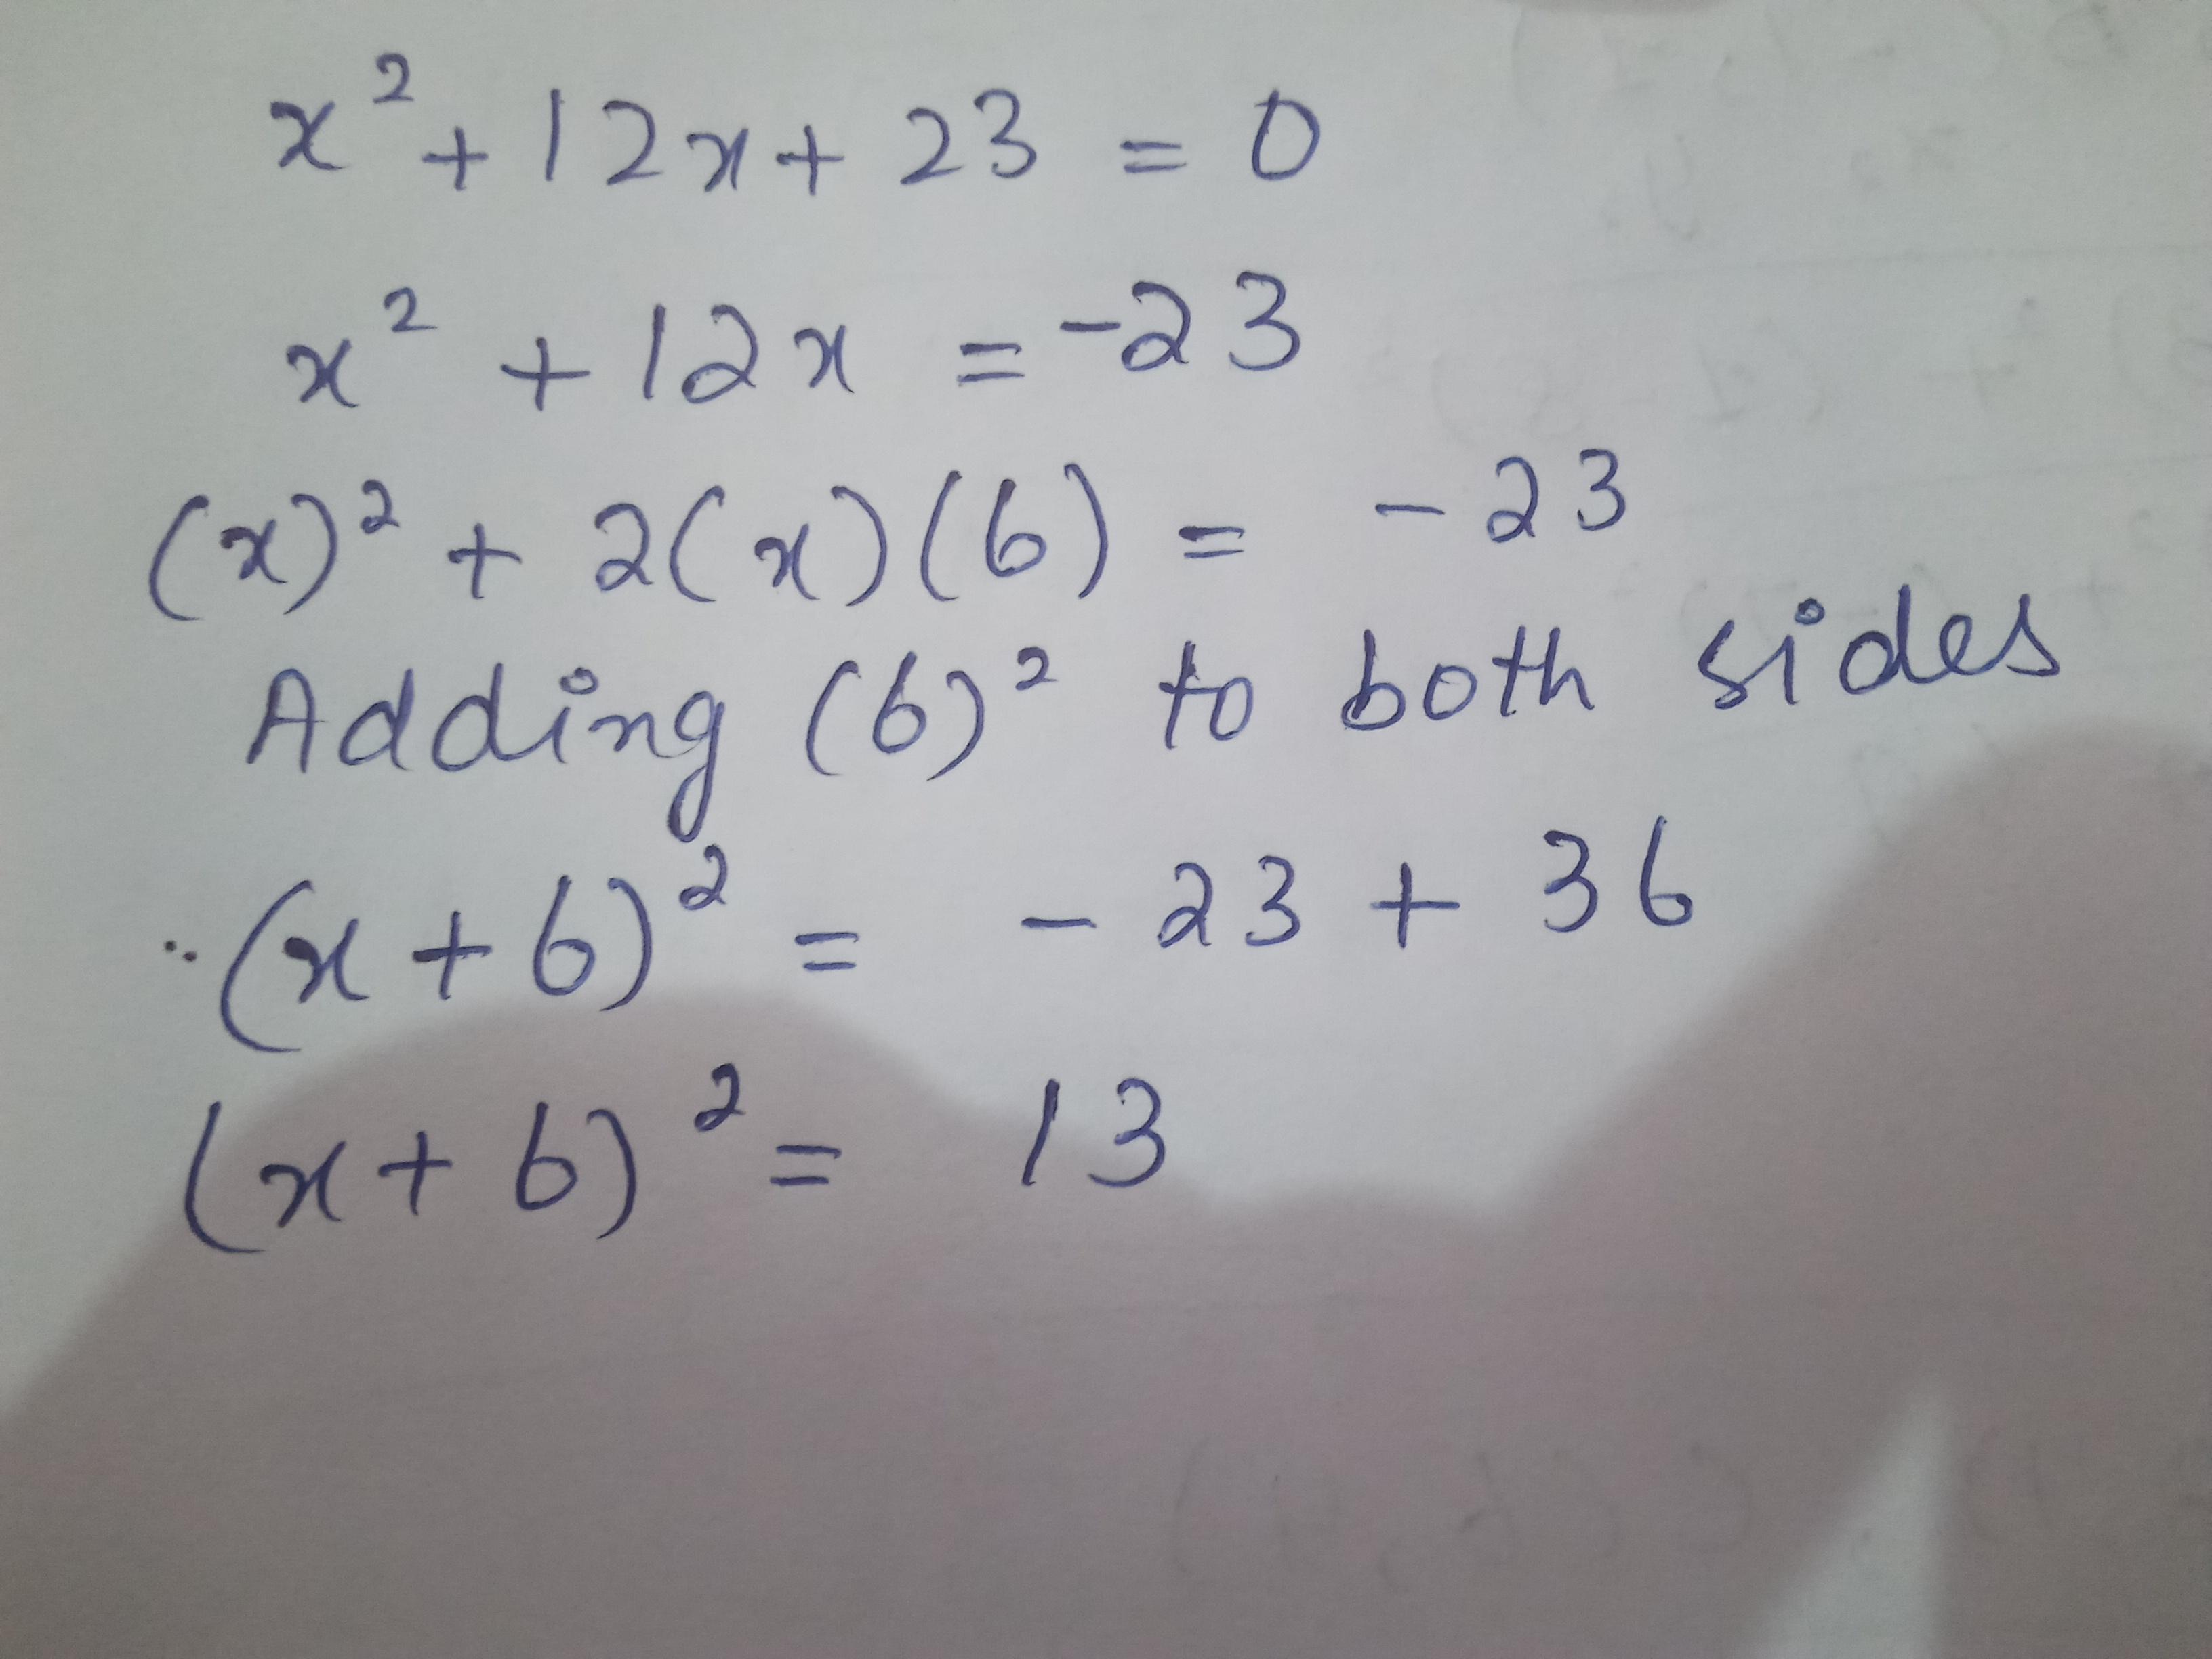 x² + 12x + 23 = 0
x² + 12x = -23
(x)² + 2(x)(6) = - 23
Adding (6)² to both sides
(x + 6)² = - 23 + 36
(x + 6)² = 13